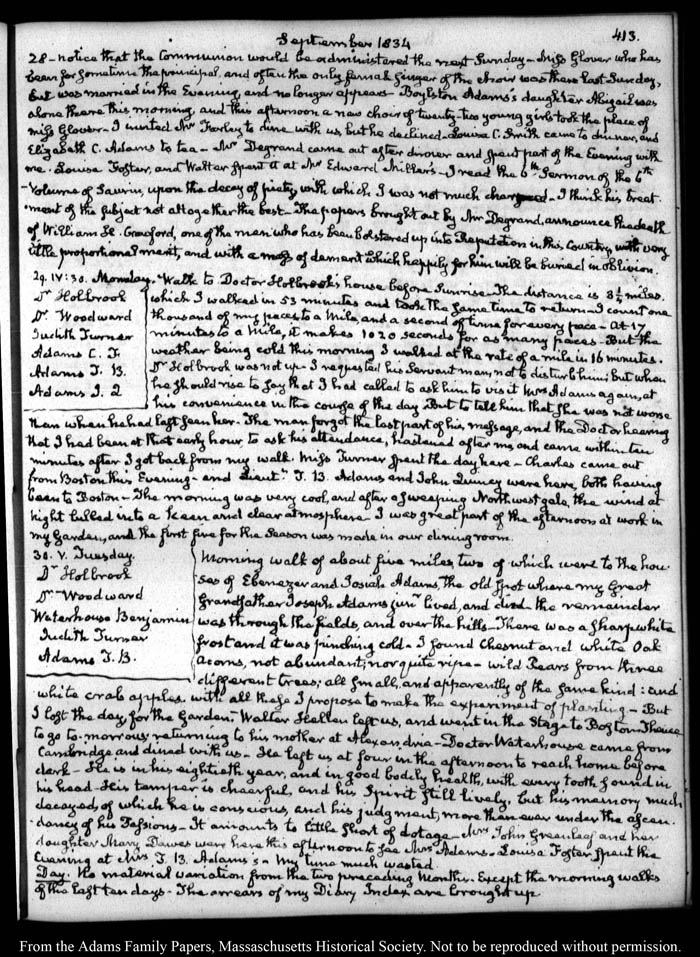 September 1834
413.
28 - notice that the Communion would be administered the next Sunday - Miss Glover who has
been for sometime the principal, and often the only female singer of the choir was there last Sunday,
but was married in the Evening, and no longer appears - Boylston Adams's daughter Abigail was
alone there this morning, and this afternoon a new choir of twenty-two young girls took the place of
Miss Glover - I invited Mr Farley to dine with us but he declined - Louisa C. Smith came to dinner, and
Elizabeth C. Adams to tea - Mr Degrand came out after dinner and spent part of the Evening with
me. Louisa Foster, and Walter spent it at Mr Edward Miller's - I read the 6th Sermon of the 6th
Volume of Saurin, upon the decay of piety with which I was not much charmed - I think his treat-
-ment of the subject not altogether the best - The papers brought out by Mr Degrand, announce the death
of William H. Crawford, one of the men who has been bolstered up into Reputation in this Country, with very
little proportional merit, and with a mass of demerit which happily for him will be buried in oblivion.
29. IV:30. Monday. Walk to Doctor Holbrook's house before Sunrise. The distance is 3¼ miles.
Dr Holbrook
Dr Woodward
Judith Turner
Adams C. F.
Adams T. B.
Adams J. 2
which I walked in 53 minutes and took the same time to return - I count one
thousand of my paces to a Mile, and a second of time for every pace - At 17
minutes to a Mile, it makes 1020 seconds for as many paces. But the
weather being cold this morning I walked at the rate of a mile in 16 minutes.
Dr Holbrook was not up. I requested his Servant man, not to disturb him; but when
he should rise to say that I had called to ask him to visit Mrs Adams again, at
his convenience in the course of the day But to tell him that she was not worse
than when he had last seen her. The man forgot the last part of his message, and the Doctor hearing
that I had been at that early hour to ask his attendance, hastened after me and came within ten
minutes after I got back from my walk. Miss Turner spent the day here - Charles came out
from Boston this Evening - and Lieutt T. B. Adams and John Quincy were here, both having
been to Boston - The morning was very cool, and after a sweeping Northwest gale, the wind at
night lulled into a keen and clear atmosphere - I was great part of the afternoon at work in
my Garden, and the first fire for the Season was made in our dining room.
30. V. Tuesday.
Dr Holbrook
Dr Woodward
Waterhouse Benjamin
Judith Turner
Adams T. B.
Morning walk of about five miles, two of which were to the hou-
ses of Ebenezer and Josiah Adams, the old spot where my Great
Grandfather Joseph Adams junr lived, and died. the remainder
was through the fields, and over the hills - There was a sharp white
frost and it was pinching cold - I found Chesnut and white Oak
Acorns, not abundant, nor quite ripe - wild Pears from three
different trees; all small, and apparently of the same kind: and
white crab apples. with all these I propose to make the experiment of planting - But
I lost the day for the Garden. Walter Hellen left us, and went in the Stage to Boston. Thence
to go to-morrow returning to his mother at Alexandria - Doctor Waterhouse came from
Cambridge and dined with us - He left us at four in the afternoon to reach home before
dark - He is in his eightieth year, and in good bodily health, with every tooth sound in
his head. His temper is chearful, and his Spirit still lively, but his memory much
decayed, of which he is conscious, and his judgment, more than ever under the ascen-
-dancy of his Passions - It amounts to little short of dotage - Mrs John Greenleaf and her
daughter Mary Dawes were here this afternoon to see Mrs Adams. Louisa Foster spent the
Evening at Mrs T. B. Adams's - My time much wasted.
Day. No material variation from the two preceding Months. Except the morning walks
of the last ten days - The arrears of my Diary Index are brought up.
From the Adams Family Papers, Massachusetts Historical Society. Not to be reproduced without permission.